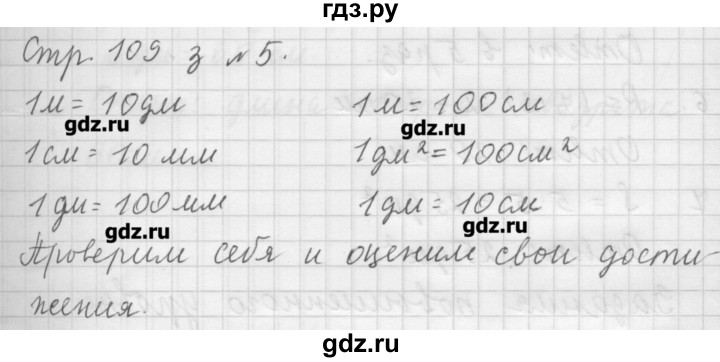 гдз.ру
Стр. 109 з №5.
1м = 10дм 1м = 100см
gdz.ru gdz.ru
1см = 10 мм 1дм² = 100см²
1дм = 100мм 1дм = 10см
gdz.ru gdz.ru
Проверим себя и оценим свои дости-
жения.
gdz.ru